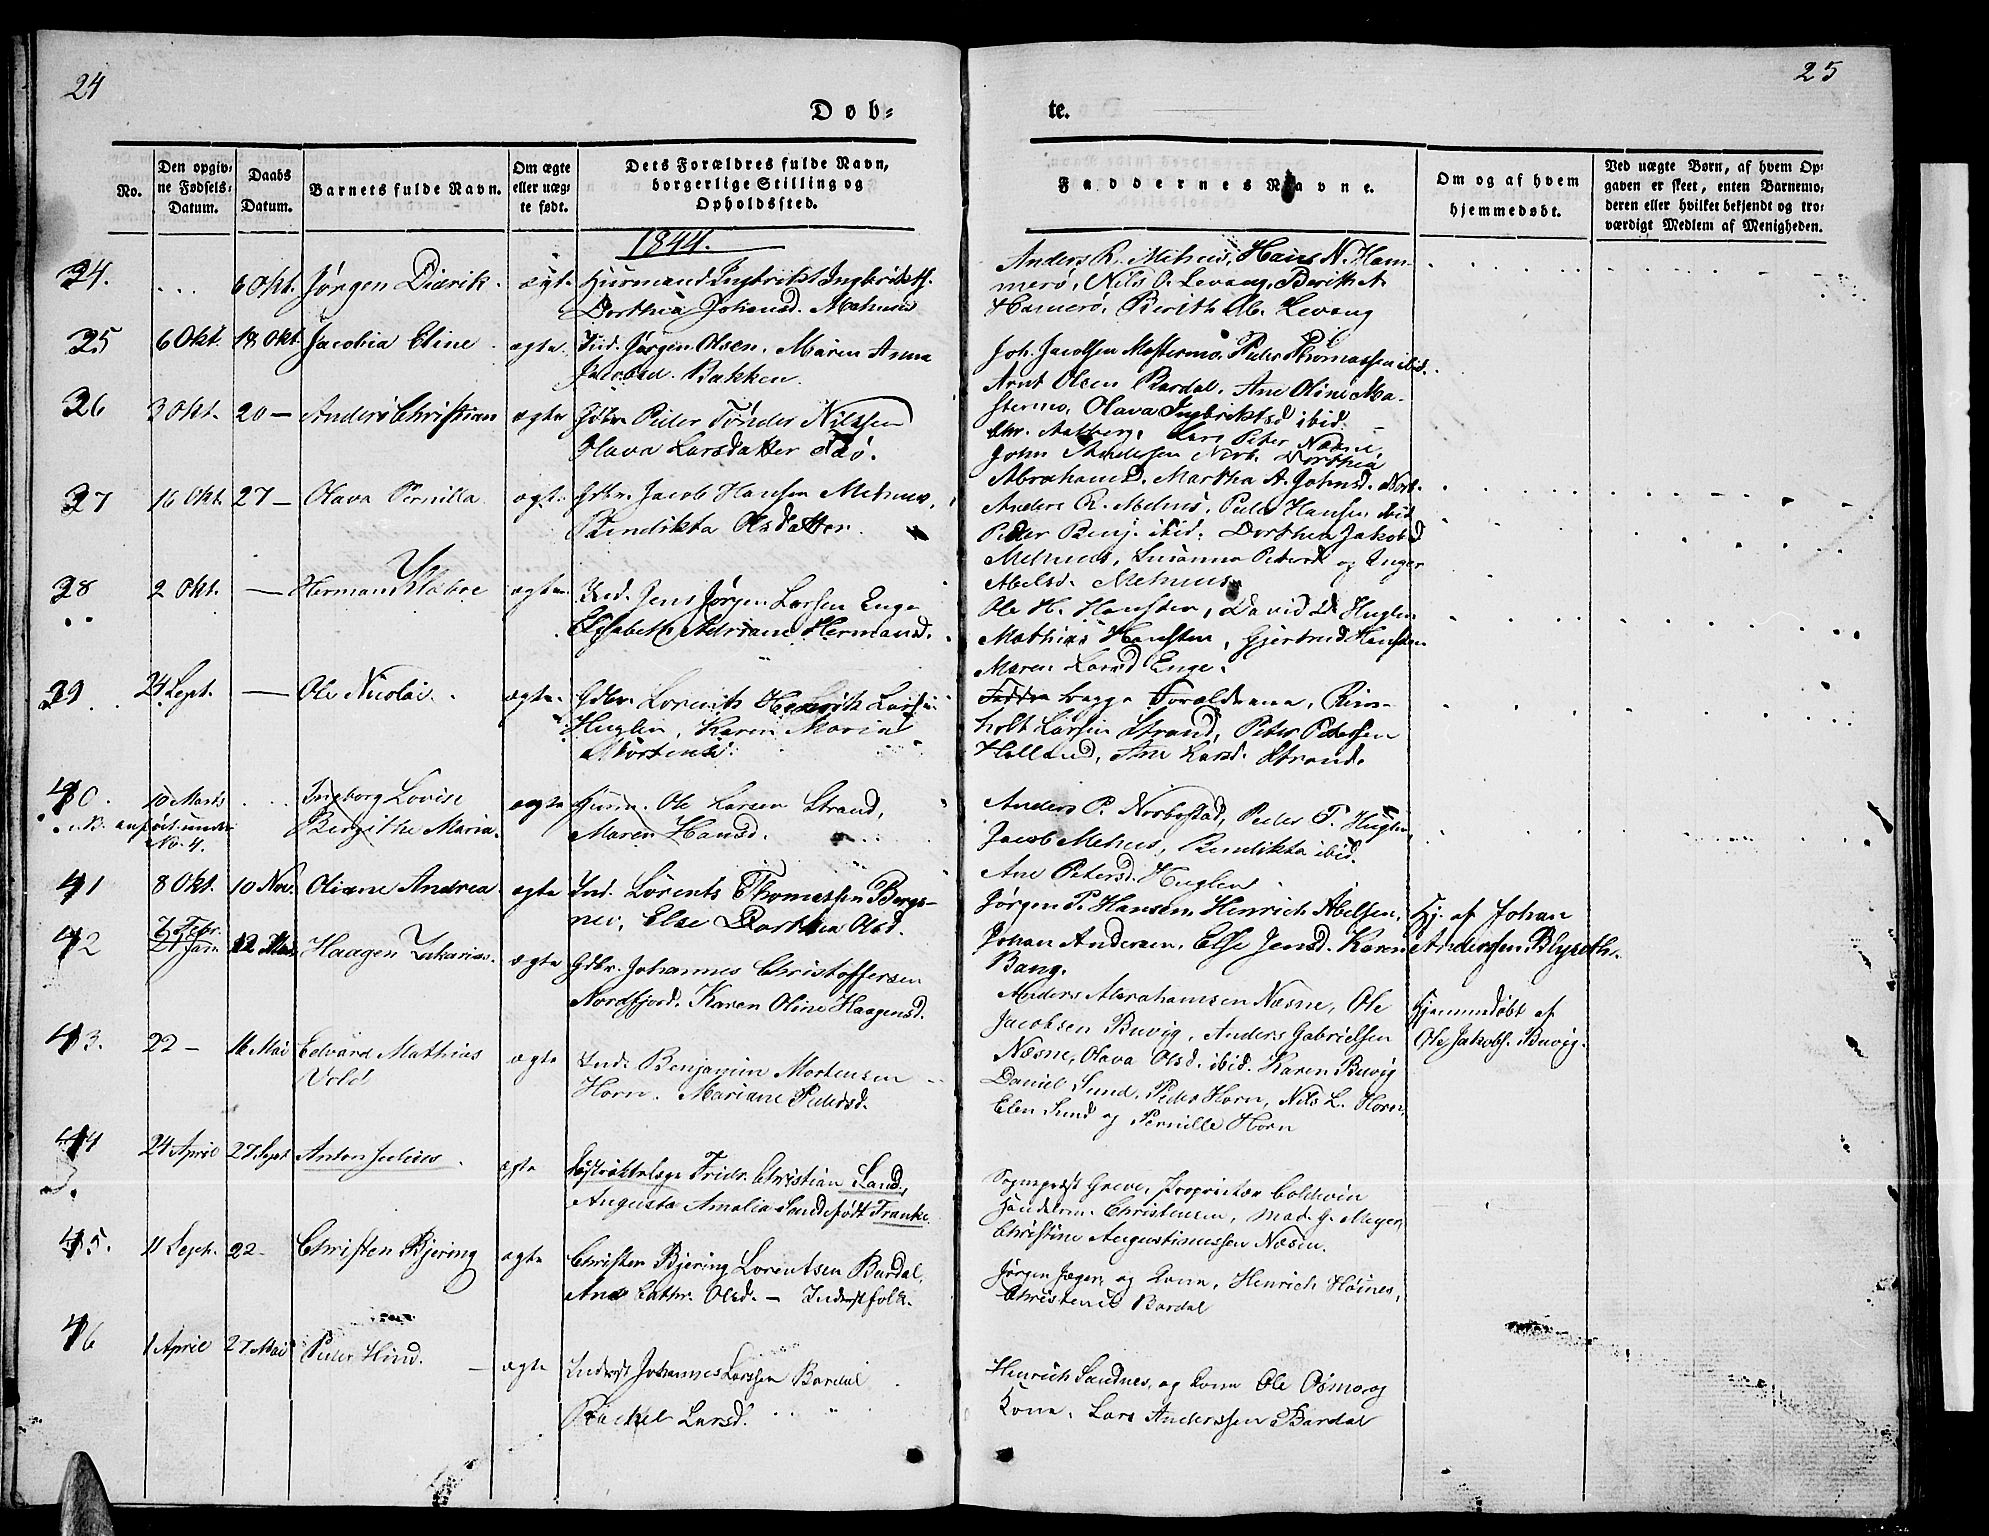 24
25
Døb-
te.
No.
Den opgiv-
ne Fødsels-
Datum.
Daabs
Datum.
Barnets fulde Navn.
Om ægte
eller uæg-
te født.
Dets Forældres fulde Navn,
borgerlige Stilling og
Opholdssted.
Faddernes Navne.
Om og af hvem
hjemmedøbt.
Ved uægte Børn, af hvem Op-
gaven er skeet, enten Barnemo-
deren eller hvilket bekjendt og tro-
værdigt Medlem af Menigheden.
1844.
34. 6 Okt. Jørgen Diærik
Dorthea Johansd. Mehuus
Anders R. Mehus, Hans N. Ham-
merø, Nils O. Levang, Berith A
Hamerø, Berith Levang
35 6 Okt. 18 Okt. Jacobia Eline ægte
Ind. Jørgen Olsen. Maren Anna
Bakken.
Joh. Jacobsen Mastermo, Peder Thomassen ibid.
Arnt Olsen Bardal, Ane Oline Ma-
stermo, Olava Ingbriktsd ibid.
36 3 Okt. 20 – Anders Christian ægte
Gdbr. Peder Tønder Nilssen
Olava Larsdatter
Chr. Aalberg, Lars Peter Næsne,
John Andersen Dorthea
Abrahamsd. Martha A. Johnsd.
37 16 Okt. 27 – Olava Pernilla ægte
Gdbr. Jacob Hansen Mehuus,
Bendikta Olsdatter.
Anders R. Mehus, Peder Hansen ibid
Peder Benj. ibid. Dorthea Jakobsd
Mehuus, Susanna Petersd og Inger
Abelsd. Mehuus
38 2 Okt. – Herman Klabøe ægte
Ind. Jens Jørgen Larsen Enge
Elisabeth Adriane Hermansd.
Ole H. Hansten, David D. Huglen
Mathias Hansten, Gjertrud Hansten
Maren Larsd Enge.
39 24 Sept. – Ole Nicolai ægte
Gdbr. Lorents Larsen
Huglen, Karen Maria
Mortensd.
begge Forældrene, Rein-
holt Larsen Strand, Peter Petersen
Helland, Ane Larsd. Strand.
40. 10 Marts Ingborg Lovise
Birgithe Maria ægte
NB. anført under
No. 4.
Ole Larsen Strand,
Maren Hansd.
Anders P. Norbostad, Peder T. Huglen,
Jacob Mehus, Bendikta ibid.
Ane Petersd. Huglen
41 8 Okt. 10 Nov. Oliane Andrea ægte
Ind. Lorents Thomessen Bergs-
nev, Else Dorthea Olsd.
Jørgen P. Hansen, Henrich Abelsen,
Johan Andersen, Else Jensd. Karen
Bang.
Hj. af Johan
Anderssen
42 7 Febr.
21 Jan 12 Mai Haagen Zakarias ægte
Gdbr. Johannes Christoffersen
Nordfjord. Karen Oline Haagensd.
Anders Abrahamsen Næsne, Ole
Jacobsen Buvig, Anders Gabrielsen
Næsne, Olava Olsd. ibid. Karen Buvig
Hjemmedøbt af
Ole Jakobs. Buvig.
43. 22 – 16 Mai Edvard Mathias
Vold ægte
Ind. Benjamin Mortensen
Horn. Mariane Pedersd.
Daniel Sund, Peder Horn, Nils L. Horn,
Elen Sund og Pernille Horn
44 24 April 27 Sept Anton Julius ægte
Distriktslæge Fridr. Christian Sand,
Augusta Amalia Sand født Franke
Sogneprest Greve, Proprietær Coldevin
Handelsm. Christensen, Mad. G. Meyer,
Christine Augustinussen Næsn.
45. 11 Sept. 22 – Christen Bjering ægte
Christen Bjering Lorentsen Bardal,
Ane Cathr. Olsd. – Inderstfolk.
Jørgen Jæger og Kone, Henrich Høines,
Christense Bardal
46 1 April 27 Mai Peder Hind. – ægte
Inderst Johannes Larssen Bardal
Rachel Larsd.
Henrich Sandnes, og Kone Ole Osmo og
Kone, Lars Anderssen Bardal